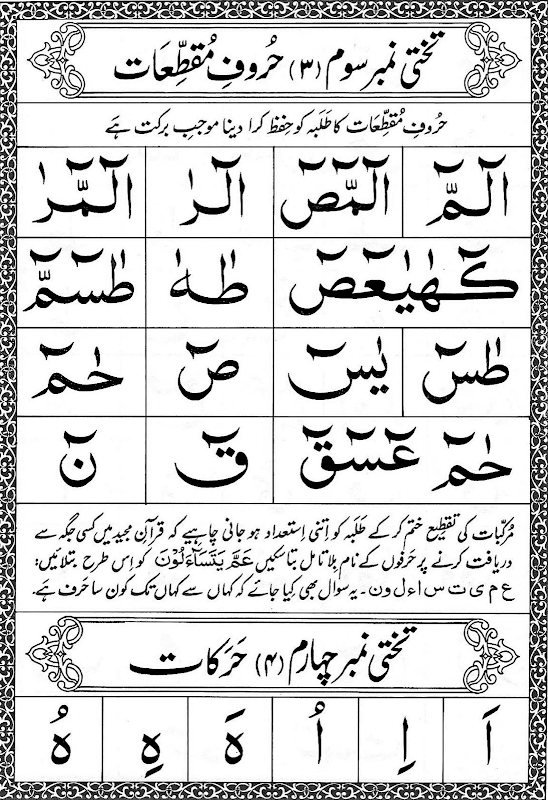 تختی نمبر سوم (۳) حُروفِ مُقطِّعَات
حُروفِ مُقطِّعَات کا طَلَبَہ کو حِفظ کرا دینا موجبِ برکت ہے
الٓـمّٓ الٓـمّٓصٓ الٓـرٰ الٓـمّٓرٰ
كٓـهٰيٰعٓصٓ طٰهٰ طٰسٓمّٓ
طٰسٓ يٰسٓ صٓ حٰمٓ
حٰمٓ عٓسٓقٓ قٓ نٓ
مُرکّبات کی تقطیع ختم کر کے طَلَبہ کو اِتنی اِستعداد ہو جانی چاہیے کہ قرآنِ مجید میں کسی جگہ سے
دریافت کرنے پر حَرفوں کے نام بلا تامل بتا سکیں عَمَّ یَتَسَآءَلُوْنَ کو اِس طرح بتلائیں:
ع م ی ت س ا ء ل و ن۔ یہ سوال بھی کیا جائے کہ کہاں سے کہاں تک کون سا حَرف ہے۔
تختی نمبر چہارم (۴) حَرَکات
اَ اِ اُ هَ هِ هُ